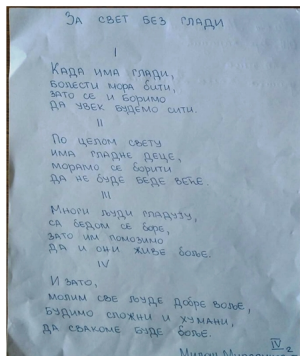 За свет без глади
I
Када има глади,
болести мора бити,
зато се и боримо
да увек будемо сити.
II
По целом свету
има гладне деце,
морамо се борити
да не буде беде веће.
III
Многи људи гладују,
са бедом се боре,
зато им помозимо
да и они живе боље.
IV
И зато,
молим све људе добре воље,
будимо сложни и хумани,
да свакоме буде боље.
IV 2